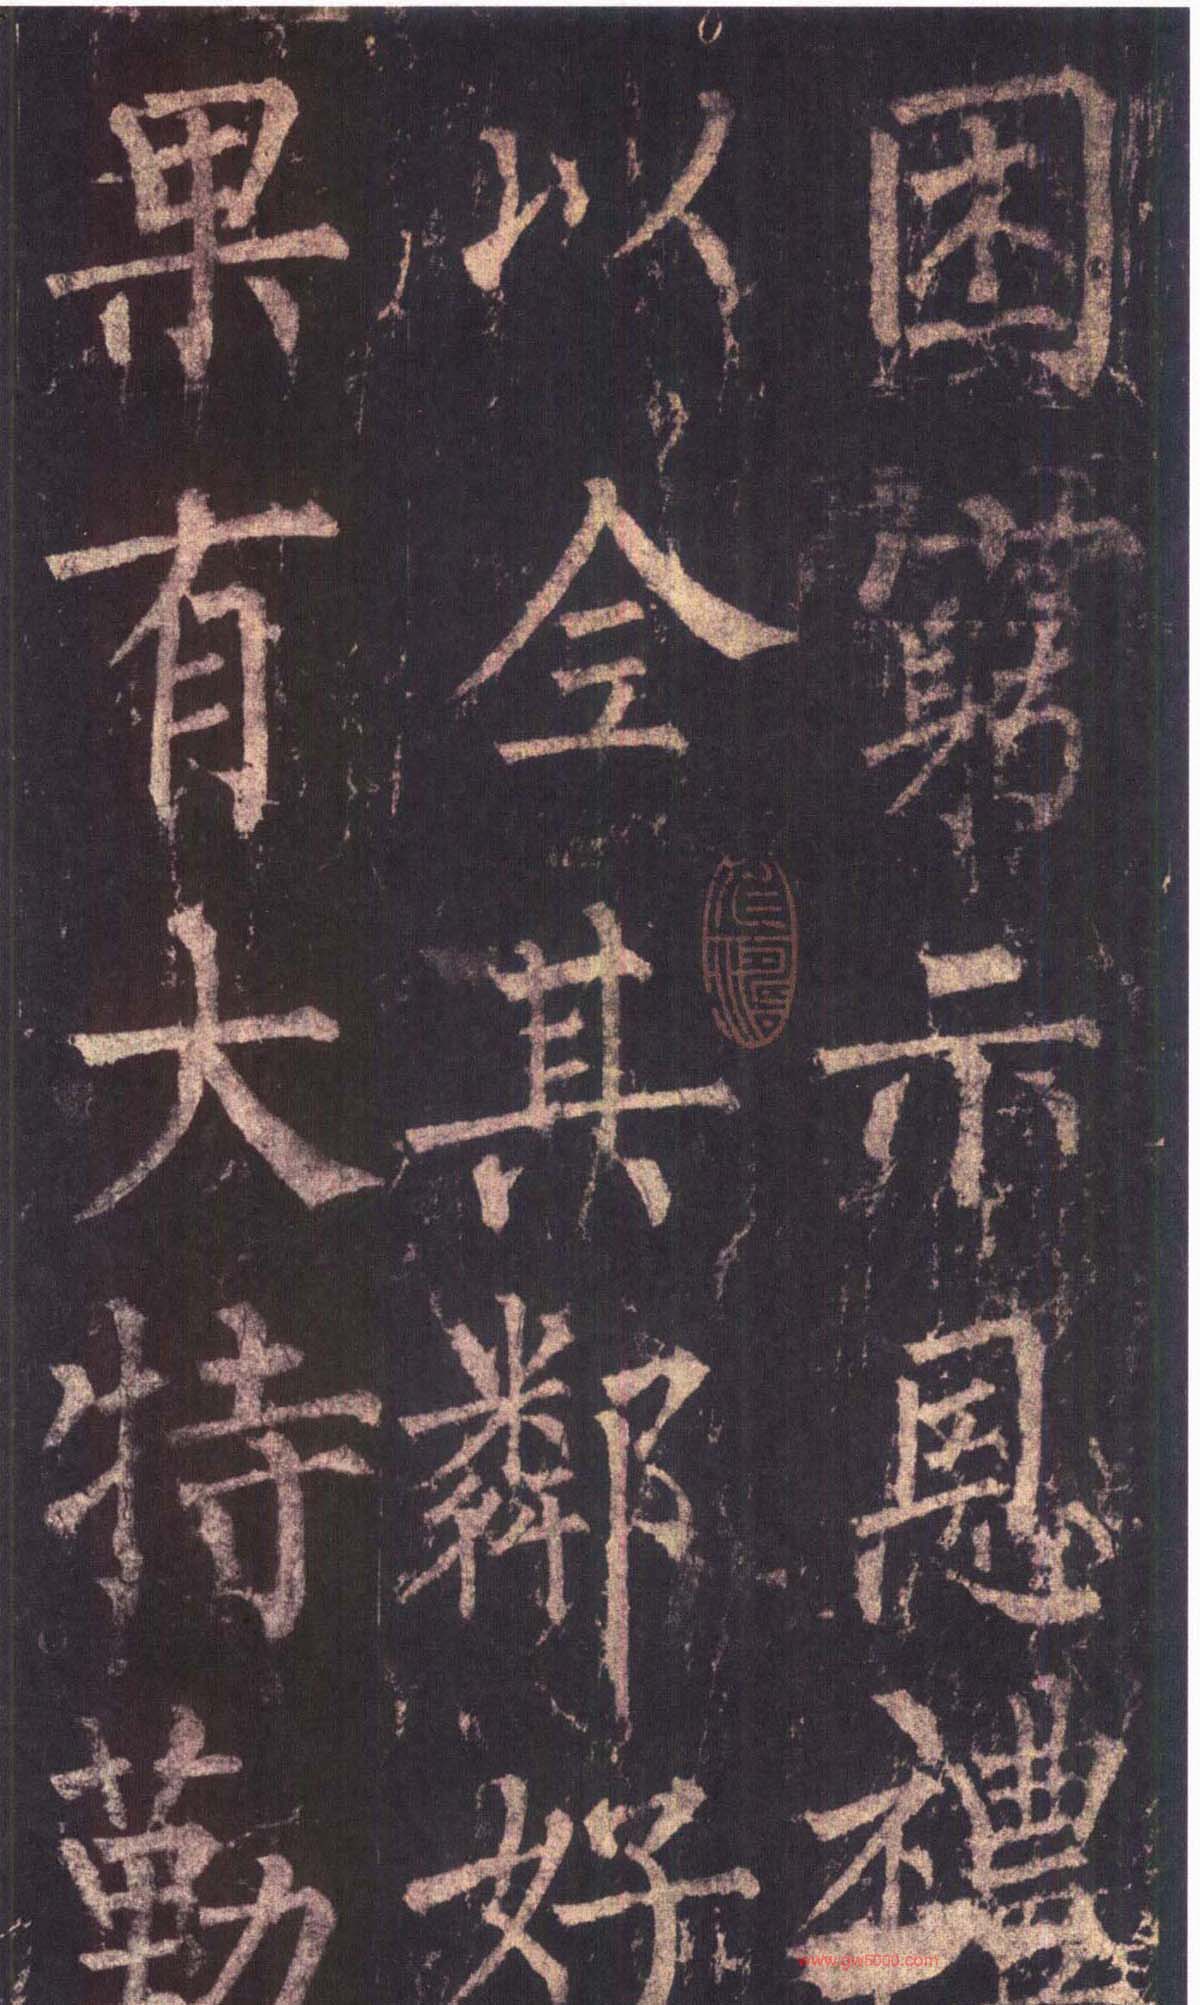 困窮示恩禮
以全其鄰好
果有大特勒
www.gw5000.com